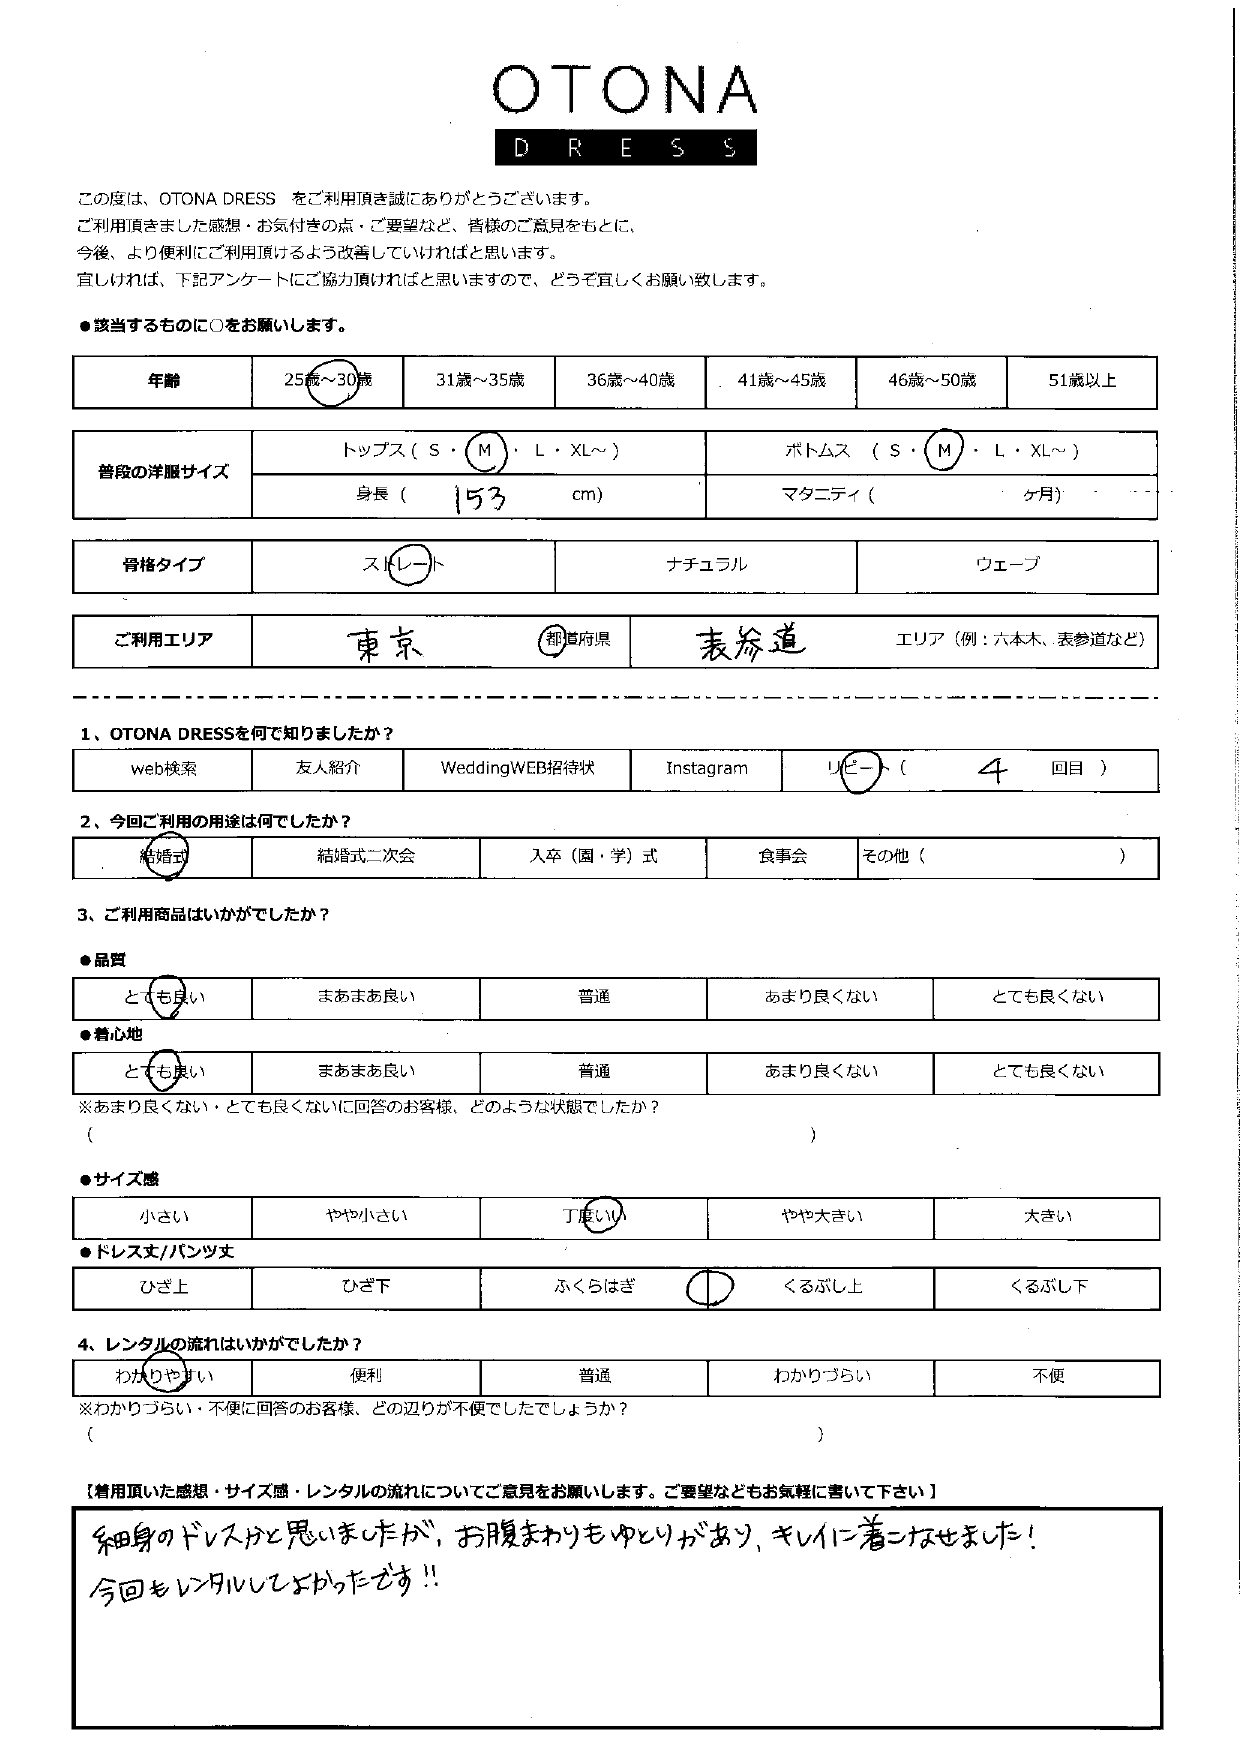 OTONA
DRESS
この度は、OTONA DRESS　をご利用頂き誠にありがとうございます。
ご利用頂きました感想・お気付きの点・ご要望など、皆様のご意見をもとに、
今後、より便利にご利用頂けるよう改善していければと思います。
宜しければ、下記アンケートにご協力頂ければと思いますので、どうぞ宜しくお願い致します。
●該当するものに○をお願いします。
年齢 25歳～30歳 31歳～35歳 36歳～40歳 41歳～45歳 46歳～50歳 51歳以上
普段の洋服サイズ トップス ( S ・ M ・ L ・ XL～ ) ボトムス ( S ・ M ・ L ・ XL～ )
身長 ( 153 cm) マタニティ ( ケ月)
骨格タイプ ストレート ナチュラル ウェーブ
ご利用エリア 東京 都道府県 表参道 エリア（例：六本木、表参道など）
1、OTONA DRESSを何で知りましたか？
web検索 友人紹介 WeddingWEB招待状 Instagram リピート ( 4 回目 )
2、今回ご利用の用途は何でしたか？
結婚式 結婚式二次会 入卒（園・学）式 食事会 その他 ( )
3、ご利用商品はいかがでしたか？
●品質
とても良い まあまあ良い 普通 あまり良くない とても良くない
●着心地
とても良い まあまあ良い 普通 あまり良くない とても良くない
※あまり良くない・とても良くないに回答のお客様、どのような状態でしたか？
( )
●サイズ感
小さい やや小さい 丁度いい やや大きい 大きい
●ドレス丈/パンツ丈
ひざ上 ひざ下 ふくらはぎ くるぶし上 くるぶし下
4、レンタルの流れはいかがでしたか？
わかりやすい 便利 普通 わかりづらい 不便
※わかりづらい・不便に回答のお客様、どの辺りが不便でしたでしょうか？
( )
【着用頂いた感想・サイズ感・レンタルの流れについてご意見をお願いします。ご要望などもお気軽に書いて下さい】
細身のドレスかと思いましたが、お腹まわりもゆとりがあり、キレイに着こなせました！
今回もレンタルしてよかったです!!